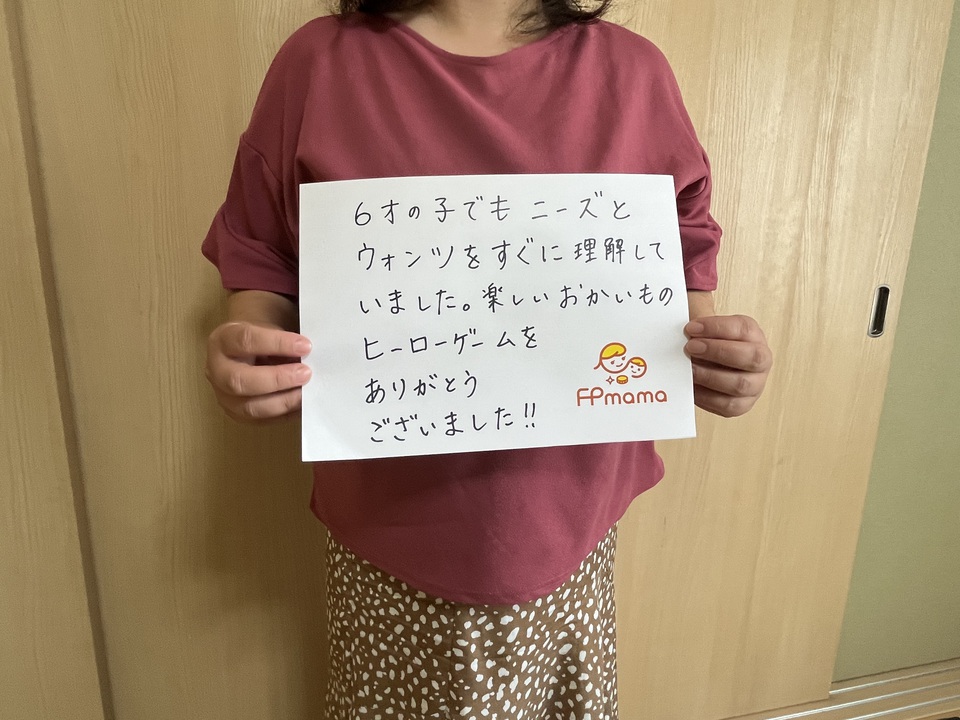 6才の子でも ニーズと
ウォンツをすぐに理解して
いました。楽しいおかいもの
ヒーローゲームを
ありがとう
ございました!!
FPmama